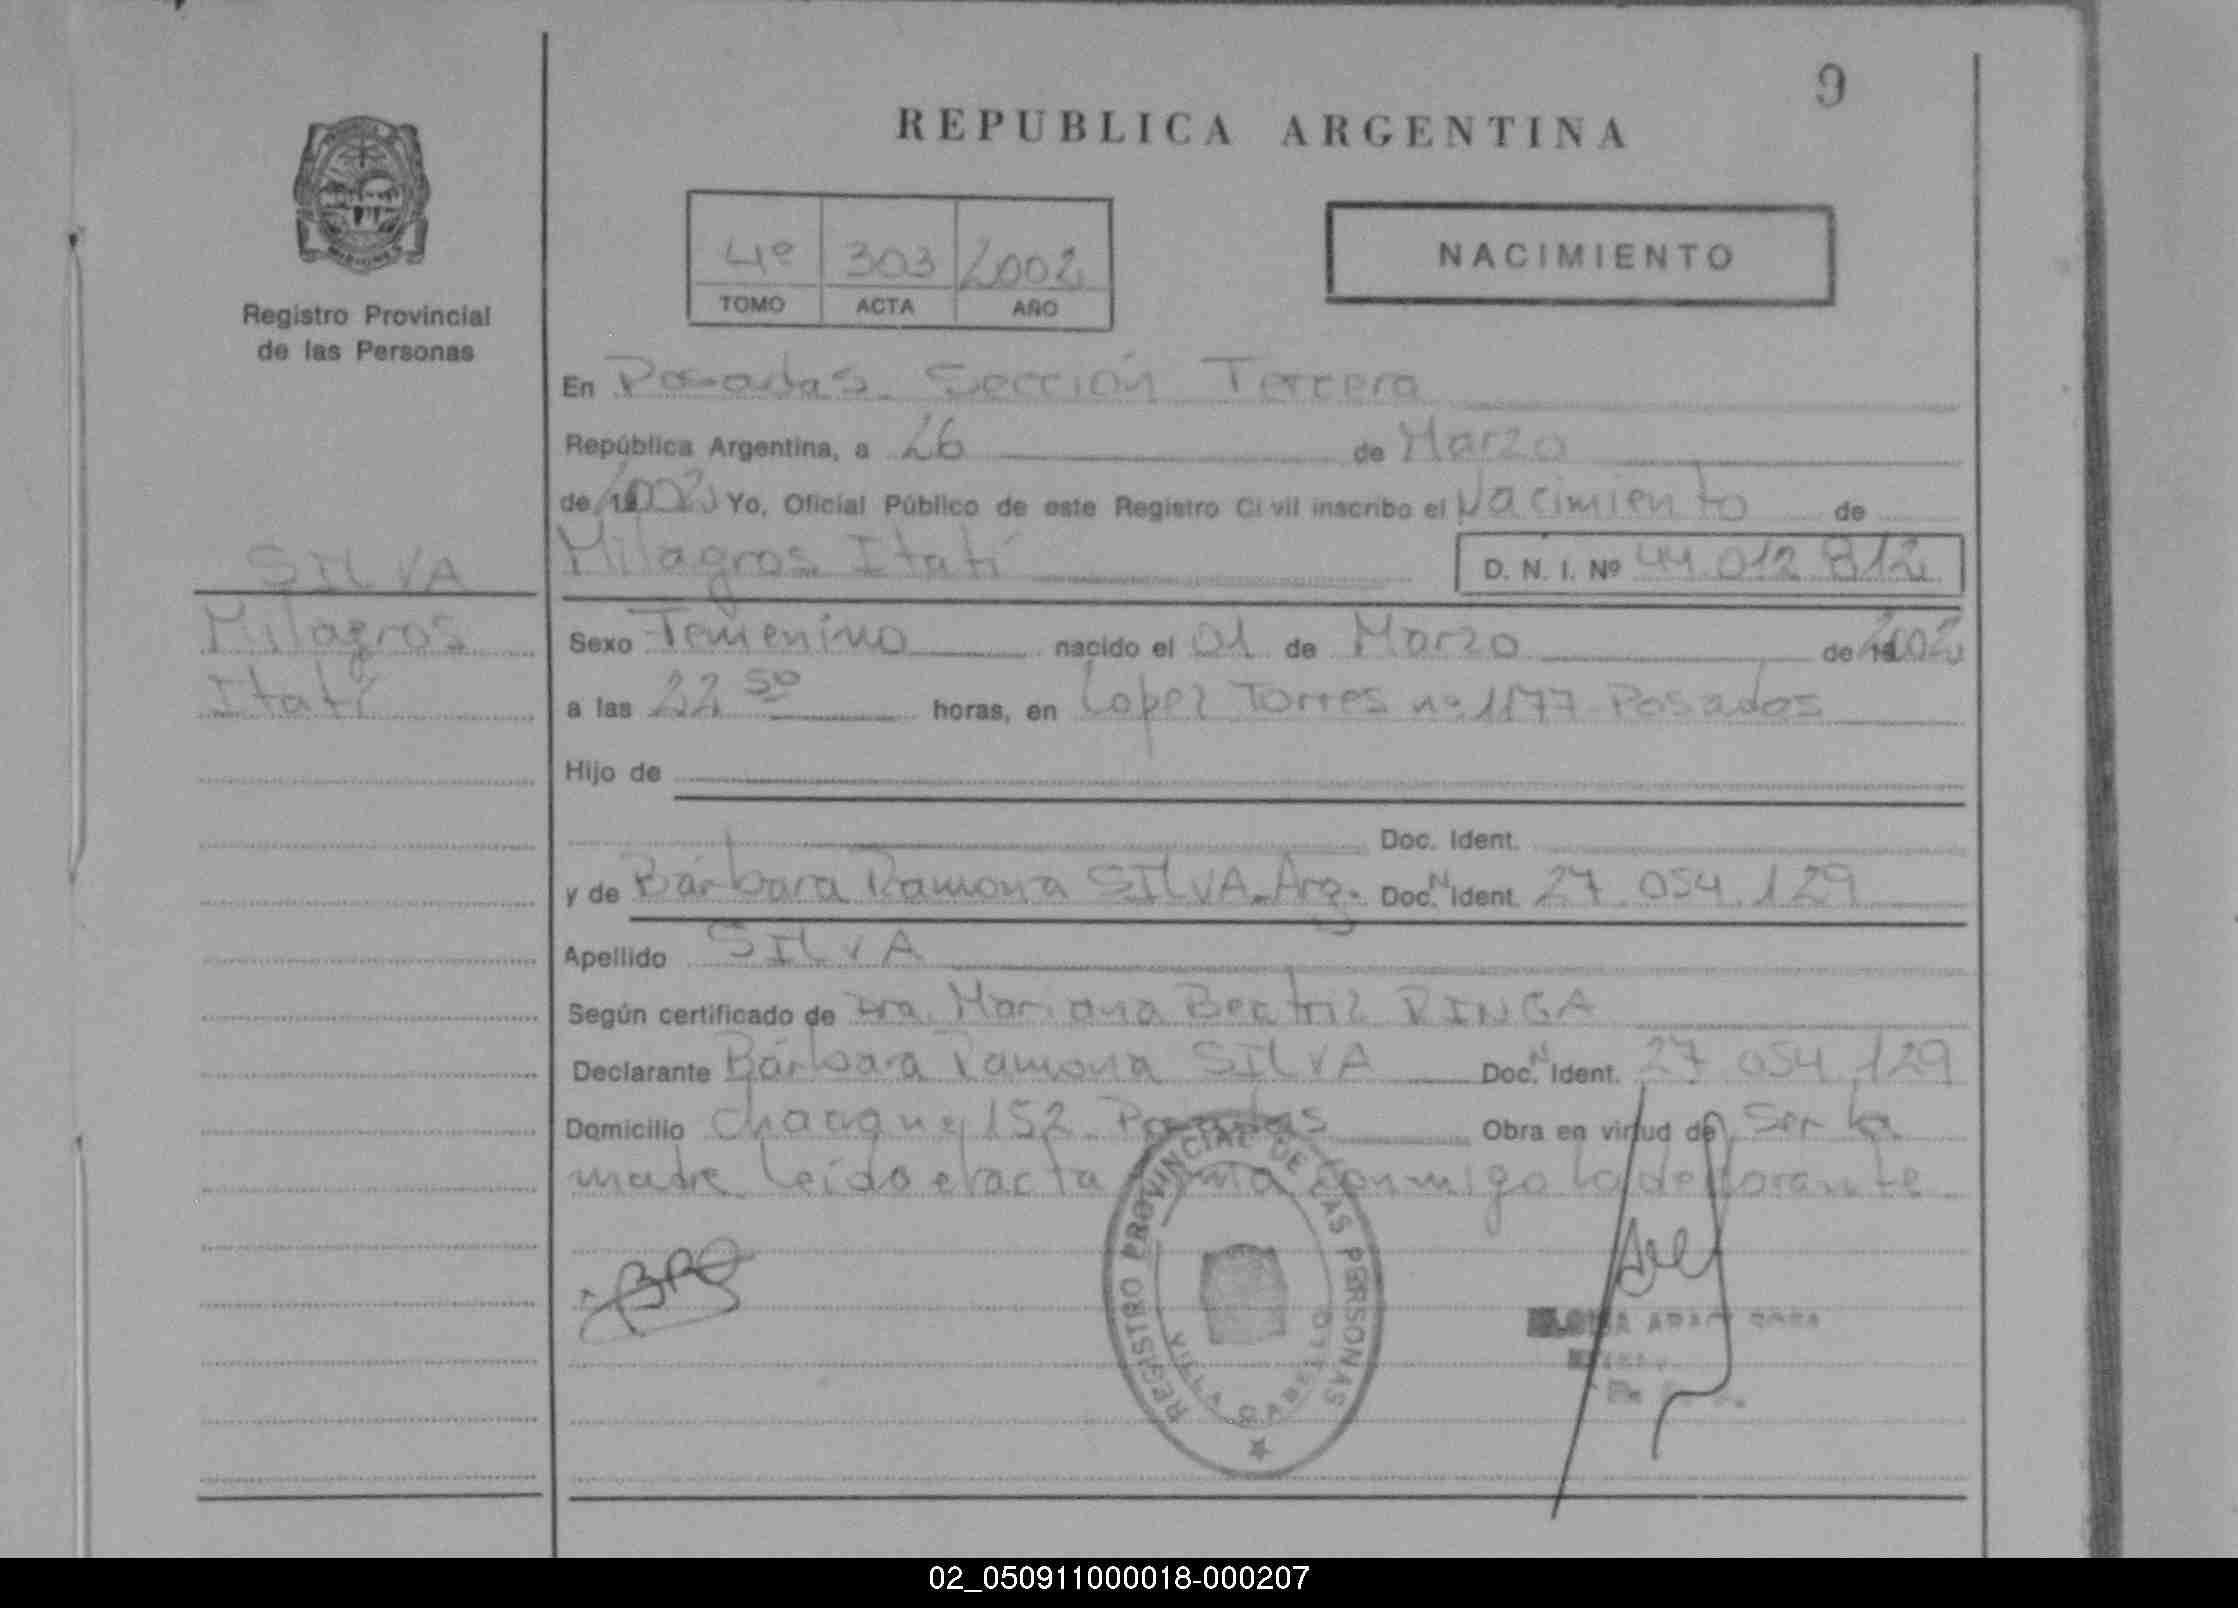 9
REPUBLICA ARGENTINA
4º 303 2002
TOMO ACTA AÑO
NACIMIENTO
Registro Provincial
de las Personas
SILVA
Milagros
Itatí
En Posadas. Sección Tercera
República Argentina, a 26 de Marzo
de 2002 Yo, Oficial Público de este Registro Civil inscribo el Nacimiento de
Milagros Itatí D. N. I. Nº 44.012.812
Sexo Femenino nacido el 01 de Marzo de 2002
a las 22 50 horas, en Lopez Torres nº 1177 Posadas
Hijo de
Doc. Ident.
y de Bárbara Ramona SILVA. Arg. Doc. N Ident. 27.054.129
Apellido SILVA
Según certificado de Dra. Mariana Beatriz
Declarante Bárbara Ramona SILVA Doc. N Ident. 27.054.129
Domicilio 152. Posadas Obra en virtud de Ser la
madre. Leído el acta firma conmigo la declarante
REGISTRO PROVINCIAL DE LAS PERSONAS
VILLA CABELLO
02_050911000018-000207